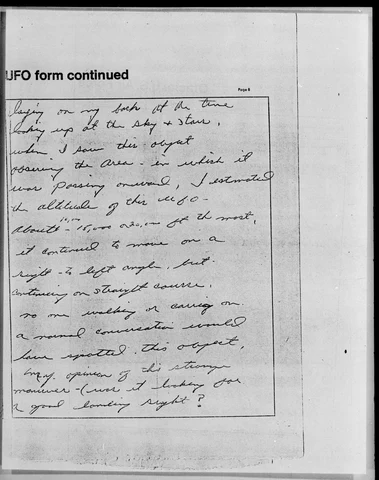 UFO form continued
Page 6
laying on my back at the time
looking up at the sky & stars,
when I saw this object
obsuring the area - in which it
was passing onward, I estimated
the altitude of this UFO -
10,000
abouts - 15,000 or 20,000 ft the most,
it continued to move on a
right - to left angle, but
continuing on straight course,
no one walking or carrying on
a normal conversation would
have spotted this object,
my opinion of this strange
manuver - (was it looking for
a good landing sight?